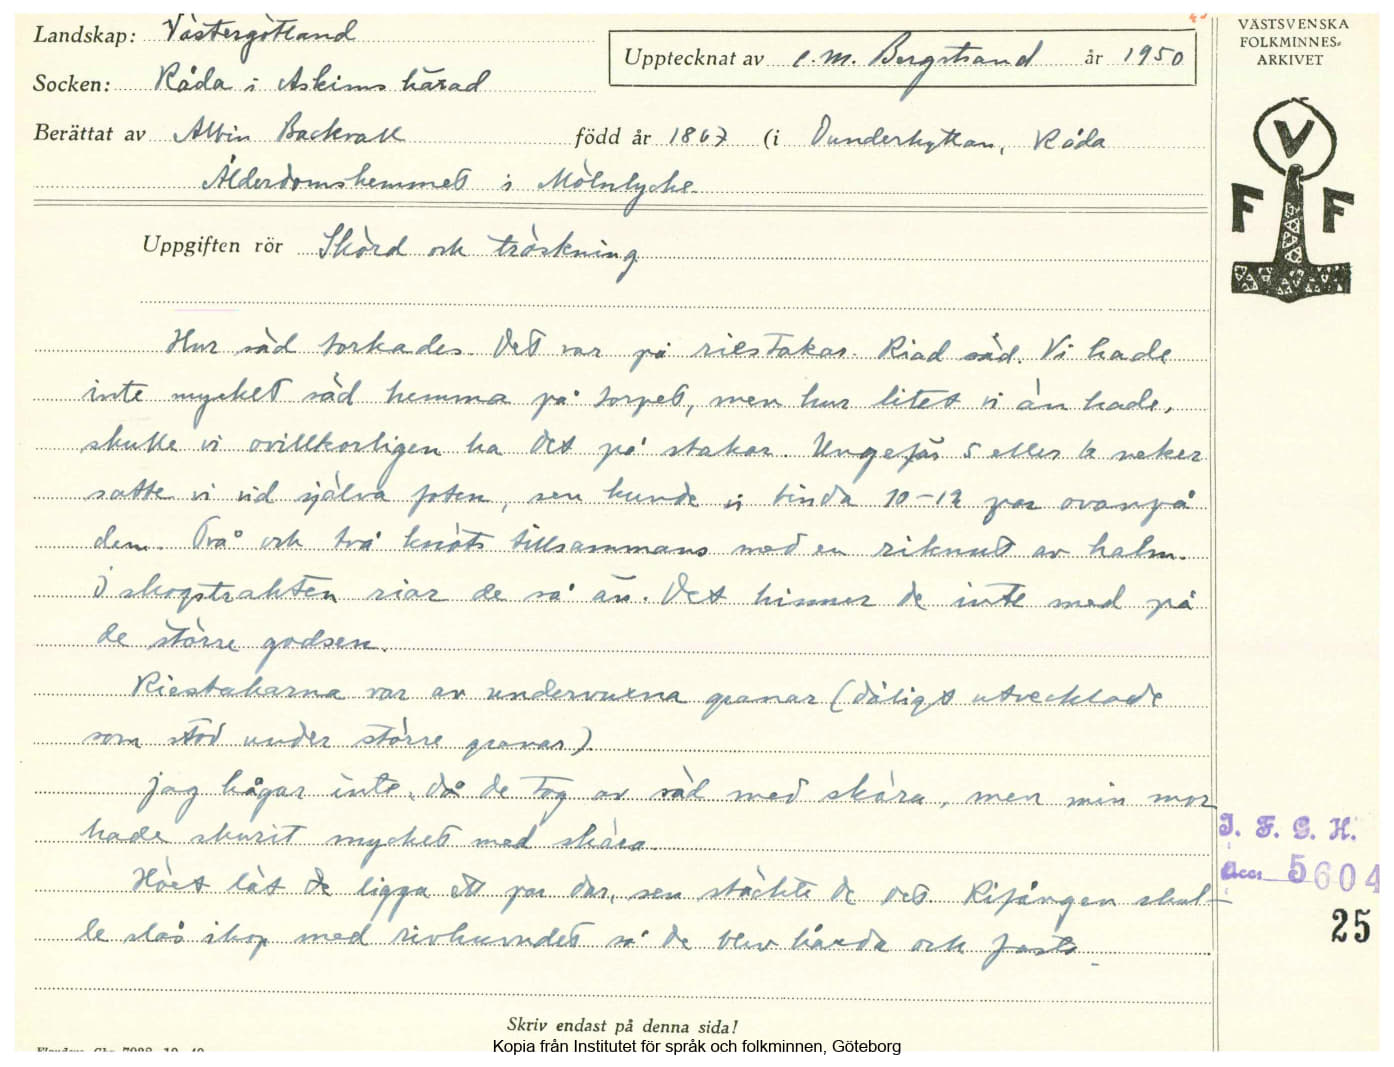 Landskap: Västergötland
Socken: Råda i Askims härad
Upptecknat av C. M. Bergstrand år 1950
Berättat av Albin Backvall född år 1867 (i Dunderhyttan, Råda
Ålderdomshemmet i Mölnlycke
Uppgiften rör Skörd och tröskning
Hur säd torkades. Det var på riestakar. Riad säd. Vi hade
inte mycket säd hemma på torpet, men hur litet vi än hade,
skulle vi ovillkorligen ha det på stakar. Ungefär 5 eller 6 neker
satte vi vid själva foten, sen kunde vi binda 10-12 par ovanpå
dem. Två och två knöts tillsammans med en riknut av halm.
I skogstrakten riar de så än. Det hinner de inte med på
de större godsen.
Riestakarna var av undervuxna granar (dåligt utvecklade
som stod under större granar).
Jag hågar inte, då de tog av säd med skära, men min mor
hade skurit mycket med skära.
Höet lät de ligga ett par dar, sen stäckte de det. Rifången skul-
le slås ihop med rivhuvudet så de blev hårda och fasta.
Skriv endast på denna sida!
VÄSTSVENSKA
FOLKMINNES-
ARKIVET
V
F F
I. F. G. H.
Acc. 5604
25
Kopia från Institutet för språk och folkminnen, Göteborg